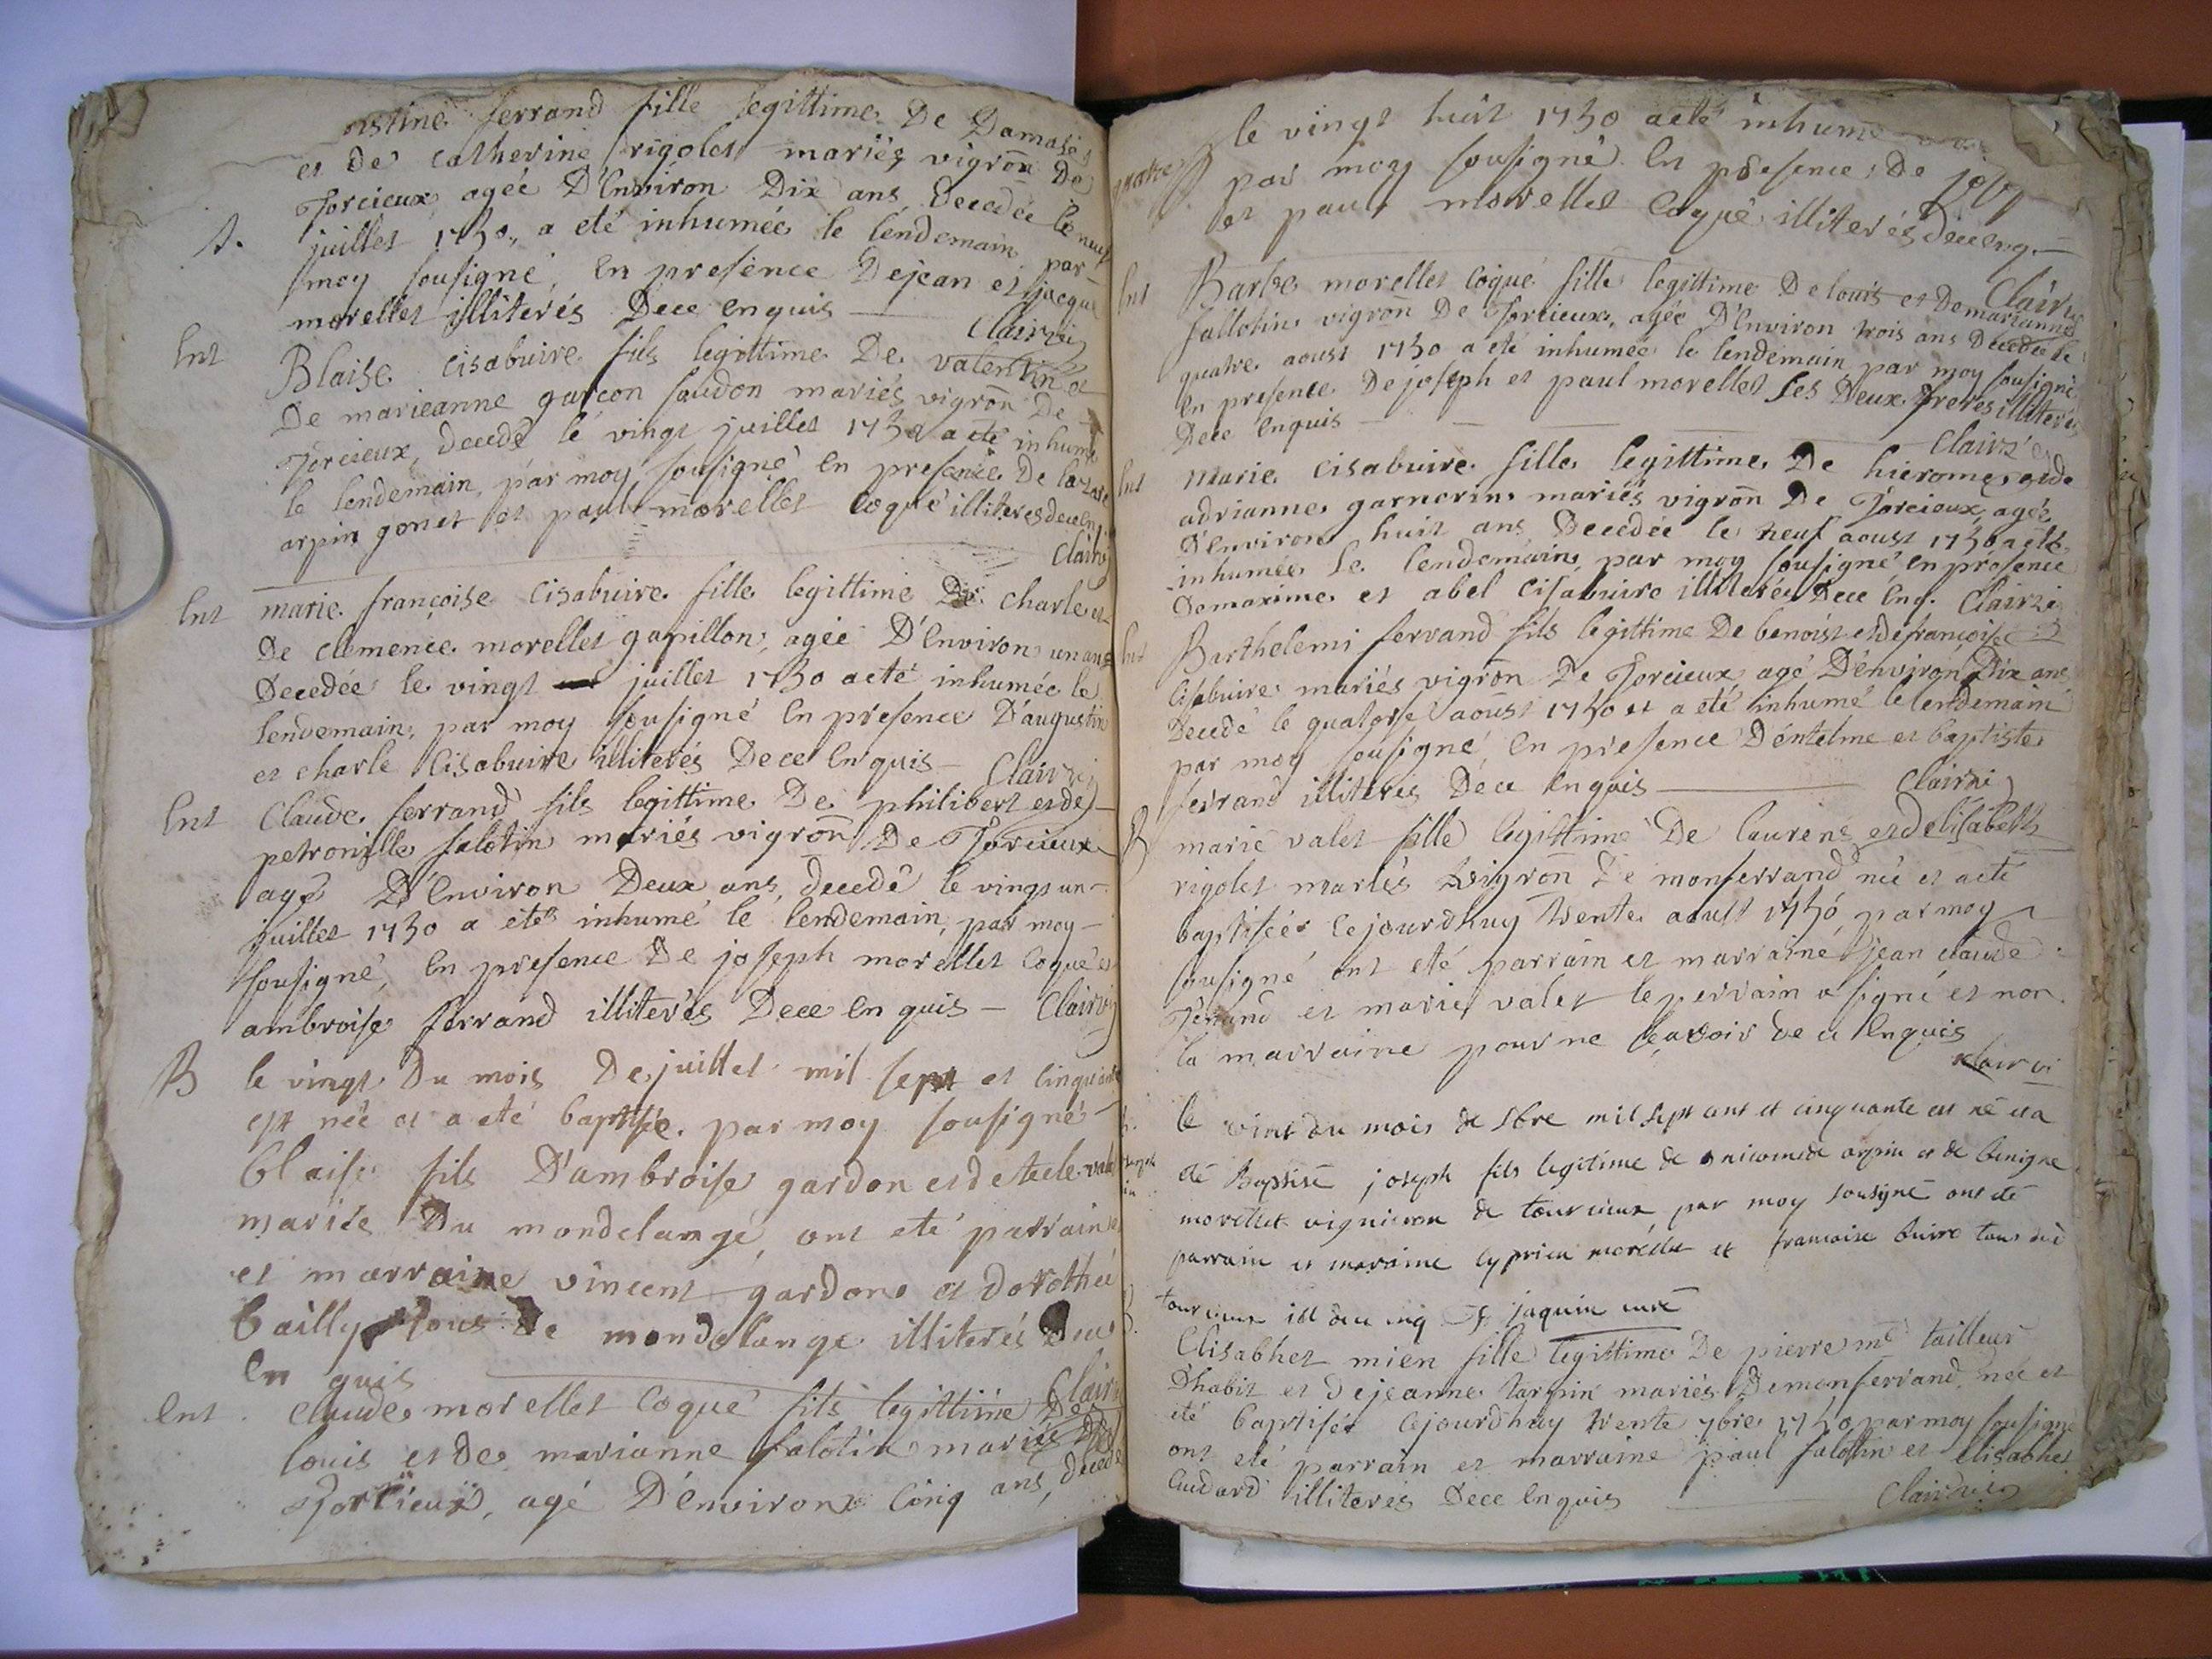 ferrand fille legittime De Damase
et de catherine rigolet mariés vigron De
Torcieux, agée D'Environ Dix ans Decedée le neuf
juillet 1750, a eté inhumée le lendemain, par
moy sousigné, En presence De jean et jacque
morellet illiterés Dece enquis Clairvi
Ent Blaise Cisabuire fils legittime De valentin et
De marieanne garcon faudon mariés vigron De
Torcieux, decedé le vingt juillet 1750 a eté inhumé
le lendemain, par moy sousigné en presence De lazare
arpin gonet et paul morellet coqué illiteres dece enq
Clairvi
Ent marie françoise Cisabuire fille legittime De charle et
De clemence morellet gapillon, agée D'Environ un ans
Decedée le vingt juillet 1750 a eté inhumée le
lendemain, par moy sousigné En presence D'augustin
et charle Cisabuire illiterés Dece en quis - Clairvi
Ent Claude ferrand fils legittime De philibert et de
petronille falotin mariés vigron De Torcieux
agé D'Environ Deux ans, decedé le vingt un
juillet 1750 a eté inhumé le lendemain, par moy
sousigné, En presence De joseph morellet coqué et
ambroise ferrand illiterés Dece en quis - Clairvi
B le vingt Du mois De juillet mil sept et cinquante
est née et a eté baptisée par moy sousigné
blaise fils D'ambroise gardon et de tecle valet
mariés Du mondelange, ont eté parrain
et marraine vincent gardon et dorothée
bailly tous De mondelange illiterés Dece
En quis Clairvi
Ent. Claude morellet coqué fils legittime De
louis et de marianne falotin mariés De
Torcieux, agé D'environ cinq ans, decedé
le vingt huit 1750 a eté inhumé
par moy sousigné En presence De
et paul morellet coqué illiterés dece enq. -
Clairvi
Ent Barbe morellet coqué fille legittime De louis et De marianne
fallotin vigron De Torcieux, agée D'Environ trois ans Decedée le
quatre aoust 1750 a eté inhumée le lendemain par moy sousigné
En presence De joseph et paul morellet ses Deux freres illiterés
Dece Enquis Clairvi
Ent Marie Cisabuire fille legittime De hierome et de
adrianne garnerin mariés vigron De Torcieux, agée
D'Environ huit ans Decedée le neuf aoust 1750 a eté
inhumée le lendemain par moy sousigné en présence
De maxime et abel Cisabuire illiterés Dece Enq. Clairvi
Ent Barthelemi ferrand fils legittime De benoist et de françoise
Cisabuire mariés vigron De Torcieux agé D'environ Dix ans
Decedé le quatorse aoust 1750 et a eté inhumé le lendemain
par moy sousigné, En presence D'entelme et baptiste
ferrand illiterés Dece Enquis Clairvi
B marie valet fille legittime De laurent et d'elisabeth
rigolet mariés vigron De monferrand née et a eté
baptisée cejourdhuy trente aoust 1750 par moy
sousigné ont eté parrain et marraine jean claude
ferrand et marie valet le perrain a signé et non
la marraine pour ne sçavoir de ce Enquis
Clairvi
le vint du mois de 8bre mil sept ant et cinquante est né et a
été Baptisé joseph fils legitime de nicomede arpin et de benigne
morellet vigneron de tourcieux par moy sousigné ont été
parrain et maraine cyprien morellet et francoise buire tous de
tourcieux ill de ce enq jaquin curé
Elisabhet mien fille legittime De pierre me tailleur
D'habit et De jeanne tarpin mariés De monferrand née et
été baptisée cejourdhuy trente 7bre 1750 par moy sousigné
ont eté parrain et marraine paul falottin et elisabhet
Cudard illiteres Dece Enquis Clairvi